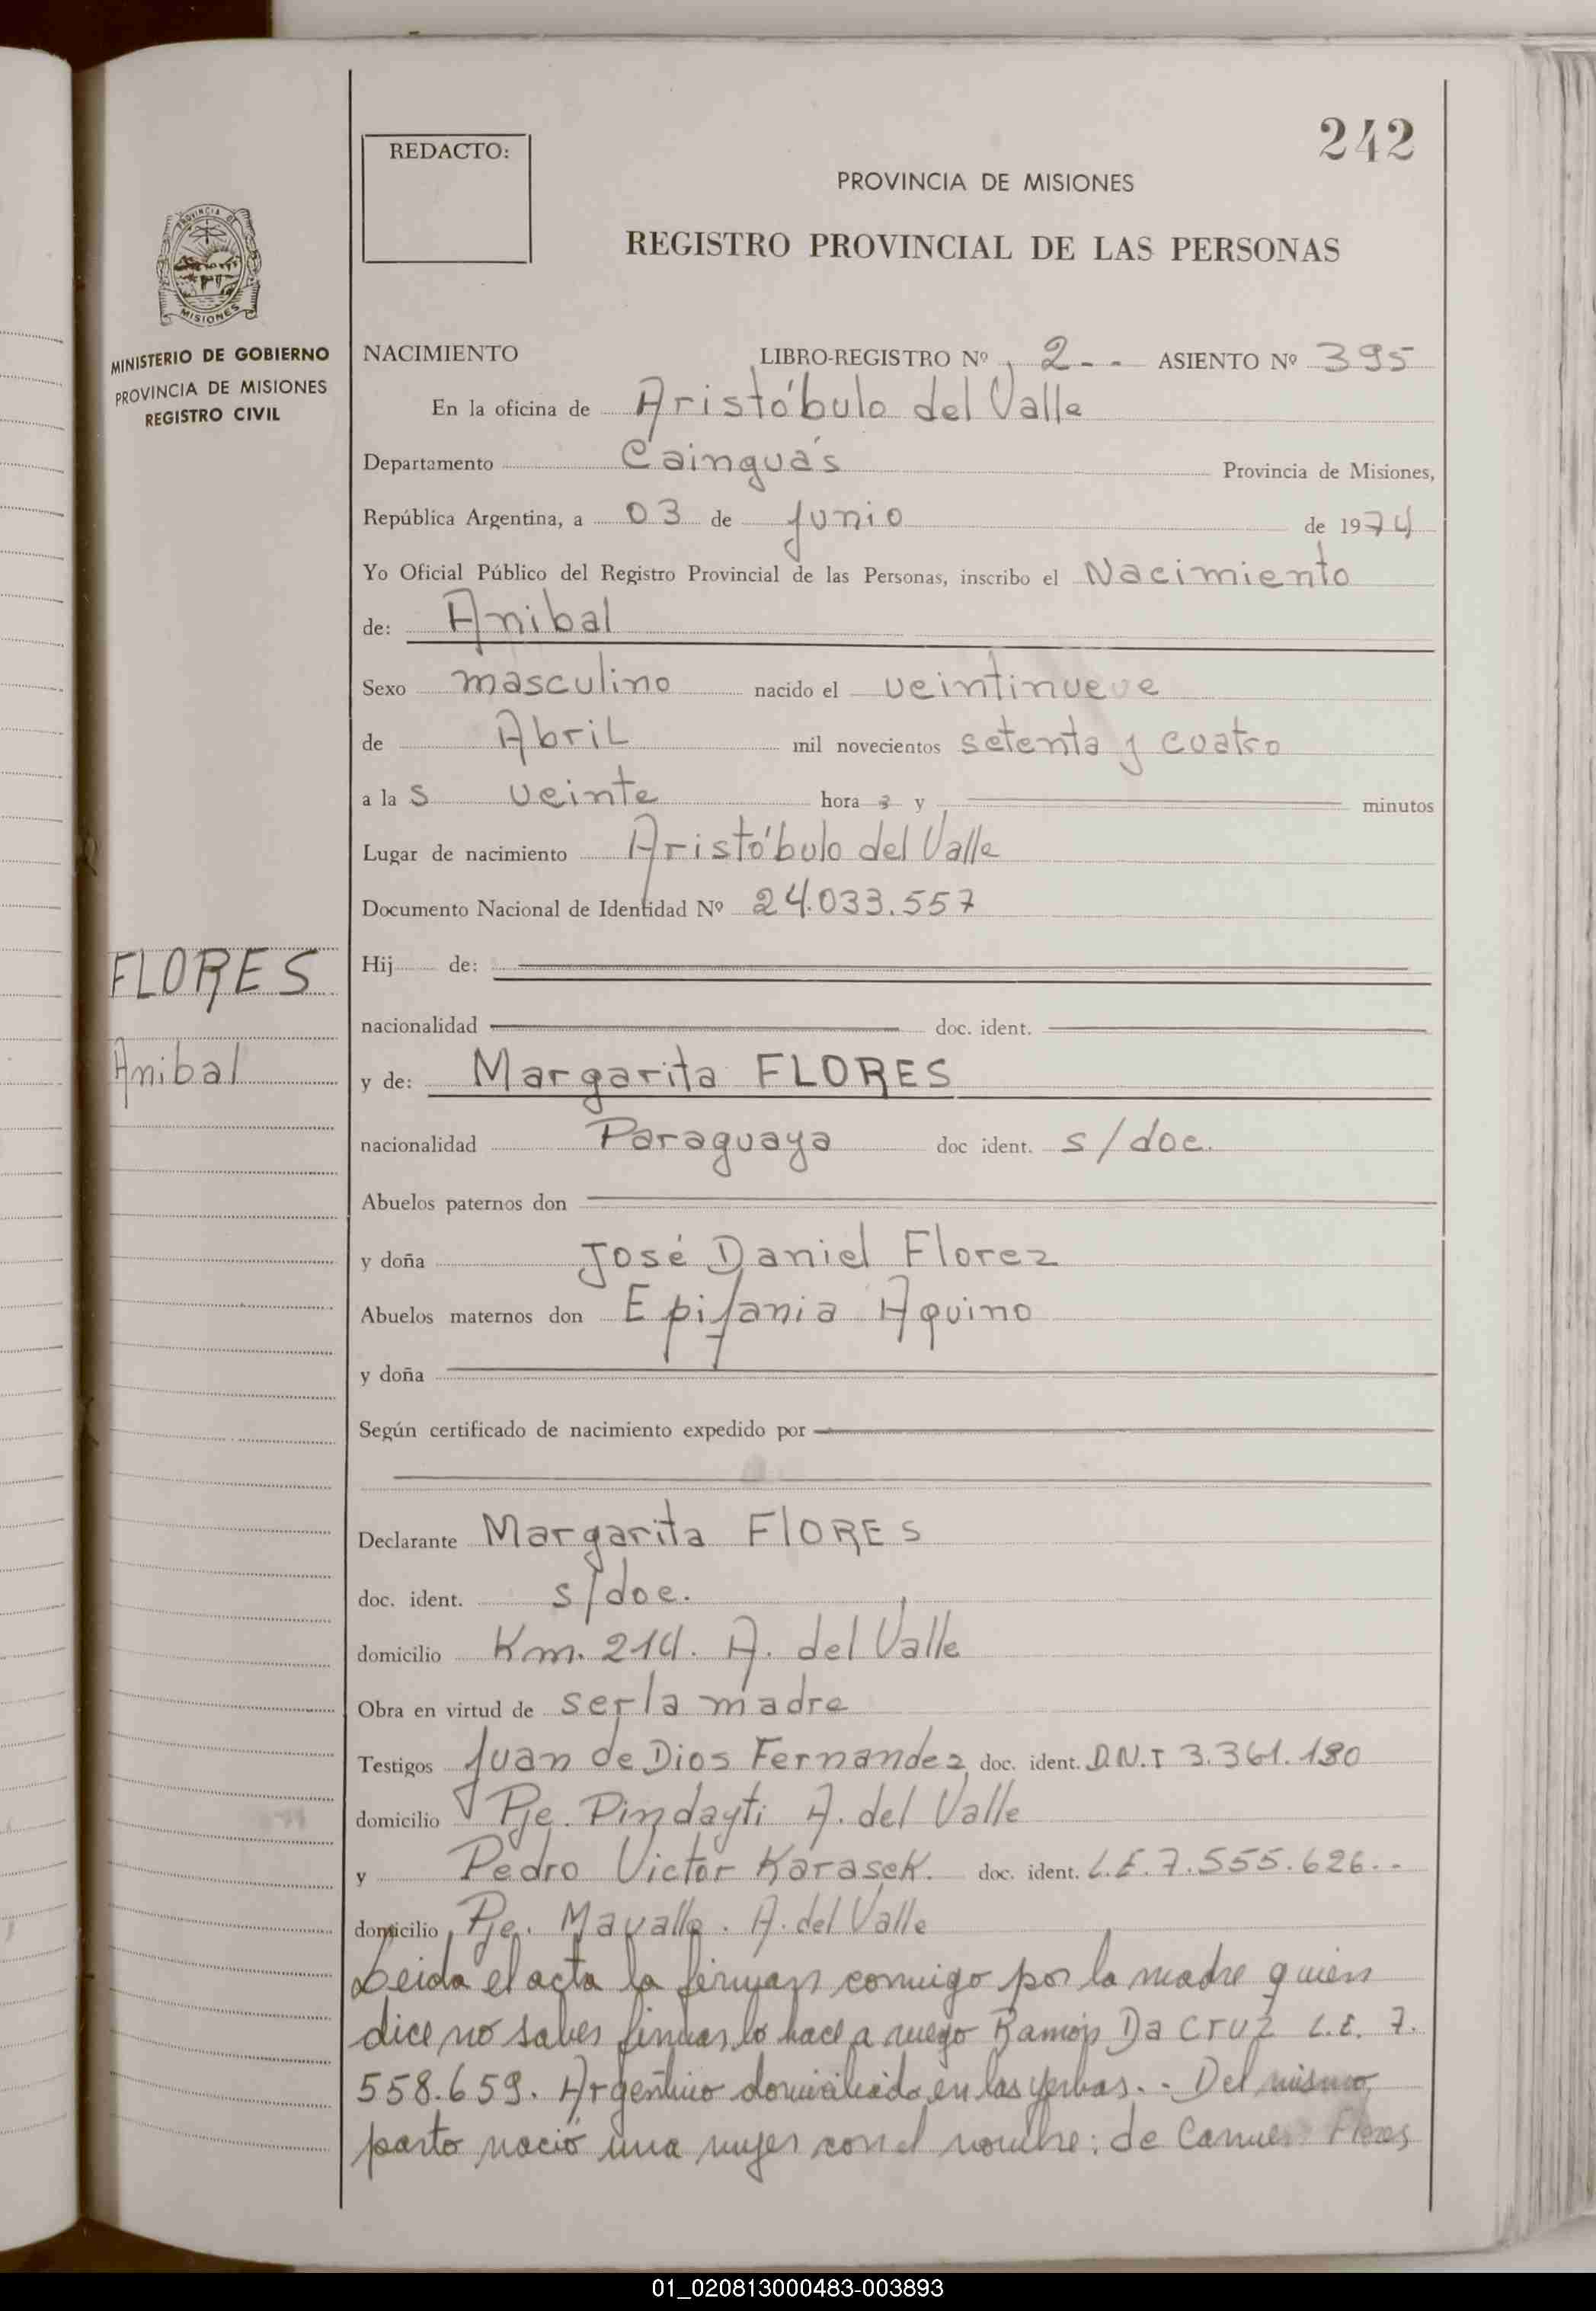 242
REDACTO:
PROVINCIA DE MISIONES
REGISTRO PROVINCIAL DE LAS PERSONAS
PROVINCIA DE
MISIONES
MINISTERIO DE GOBIERNO
PROVINCIA DE MISIONES
REGISTRO CIVIL
NACIMIENTO LIBRO-REGISTRO Nº 2-- ASIENTO Nº 395
En la oficina de Aristóbulo del Valle
Departamento Cainguás Provincia de Misiones,
República Argentina, a 03 de junio de 1974
Yo Oficial Público del Registro Provincial de las Personas, inscribo el Nacimiento
de: Anibal
Sexo masculino nacido el veintinueve
de Abril mil novecientos setenta y cuatro
a la s veinte hora s y minutos
Lugar de nacimiento Aristóbulo del Valle
Documento Nacional de Identidad Nº 24.033.557
FLORES
Anibal
Hij de:
nacionalidad doc. ident.
y de: Margarita FLORES
nacionalidad Paraguaya doc ident. s/doc.
Abuelos paternos don
y doña José Daniel Florez
Abuelos maternos don Epifania Aquino
y doña
Según certificado de nacimiento expedido por
Declarante Margarita FlORES
doc. ident. s/doc.
domicilio Km. 214. A. del Valle
Obra en virtud de ser la madre
Testigos Juan de Dios Fernandez doc. ident. D.N.I 3.361.180
domicilio Pje. Pindayti A. del Valle
y Pedro Victor Karasek. doc. ident. L.E. 7.555.626.-
domicilio Pje. A. del Valle
Leida el acta la firman conmigo por la madre quien
dice no saber firmar lo hace a ruego Ramón Da Cruz L.E. 7.
558.659. Argentino domiciliado en las yerbas.- Del mismo
parto nació una mujer con el nombre: de Flores
01_020813000483-003893